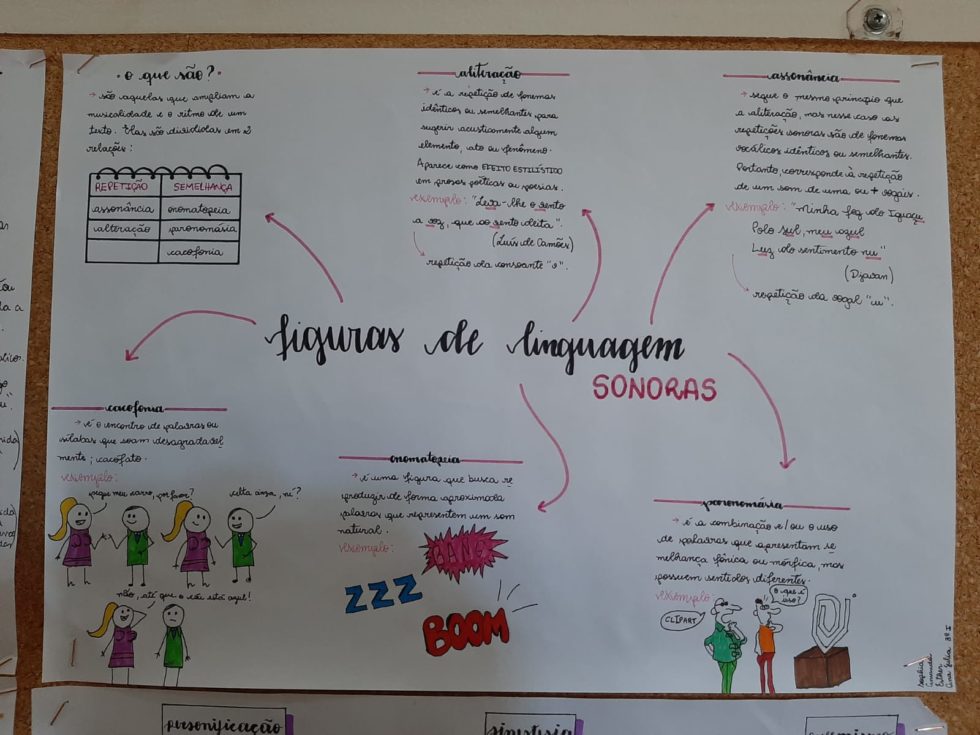 o que são?
→ são aquelas que ampliam a
musicalidade e o ritmo de um
texto. Elas são divididas em 2
relações:
REPETIÇÃO SEMELHANÇA
assonância onomatopeia
alteração paronomária
cacofonia
aliteração
→ é a repetição de fonemas
idênticos ou semelhantes para
sugerir acusticamente algum
elemento, ato ou fenômeno.
Aparece como EFEITO ESTILÍSTICO
em prosas poéticas ou poesias.
exemplo: "Leva-lhe o vento
a voz, que ao vento deita".
(Luís de Camões)
repetição da consoante "v".
assonância
→ segue o mesmo princípio que
a aliteração, mas nesse caso as
repetições sonoras são de fonemas
vocálicos idênticos ou semelhantes.
Portanto, corresponde à repetição
de um som de uma ou + vogais.
exemplo: "Minha foz do Iguaçu
Polo sul, meu azul
Luz do sentimento nu"
(Djavan)
→ repetição da vogal "u".
figuras de linguagem
SONORAS
cacofonia
→ é o encontro de palavras ou
sílabas que soam desagradavel
mente; cacofato.
exemplo:
pegue meu carro, por favor?
volta ânsia, né?
não, até que o céu está azul!
onomatopeia
→ é uma figura que busca re
produzir de forma aproximada
palavras que representem um som
natural.
exemplo:
BANG
ZZZ
BOOM
paronomária
→ é a combinação e/ou o uso
de palavras que apresentam se
melhança fônica ou mórfica, mas
possuem sentidos diferentes.
exemplo:
CLIPART
O que é
isso?
Sophia
Amanda
Esther
Ana Julia 8º I
personificação
sinestesia